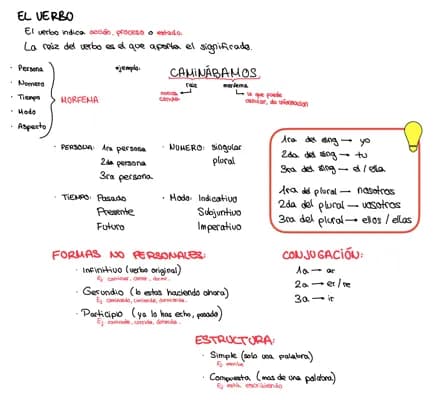 EL VERBO
El verbo indica acción, proceso o estado.
La raiz del verbo es el que aporta el significado.
· Persona
· Numero
· Tiempo
· Modo
· Aspecto
MORFEMA
ejemplo:
CAMINÁBAMOS
raiz
morfema
lo que puede
cambiar, da informacion
· PERSONA: 1ra persona
2da persona
3ra persona
· NUMERO: singular
plural
· TIEMPO: Pasado
Presente
Futuro
· Modo: Indicativo
Subjuntivo
Imperativo
1ra del sing → yo
2da del sing → tu
3ra del sing → el / ella
1ra del plural → nosotros
2da del plural → vosotros
3ra del plural → ellos / ellas
FORMAS NO PERSONALES:
· Infinitivo (verbo original)
Ej caminar, comer, dormir
· Gerundio (lo estas haciendo ahora)
Ej caminando, comiendo, durmiendo
· Participio (ya lo has echo, pasado)
Ej caminado, comido, dormido
CONJUGACIÓN:
1a → ar
2a → er / re
3a → ir
ESTRUCTURA:
· Simple (solo una palabra)
· Compuesta (mas de una palabra)
Ej está escribiendo